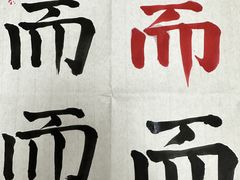 而 而
而 而